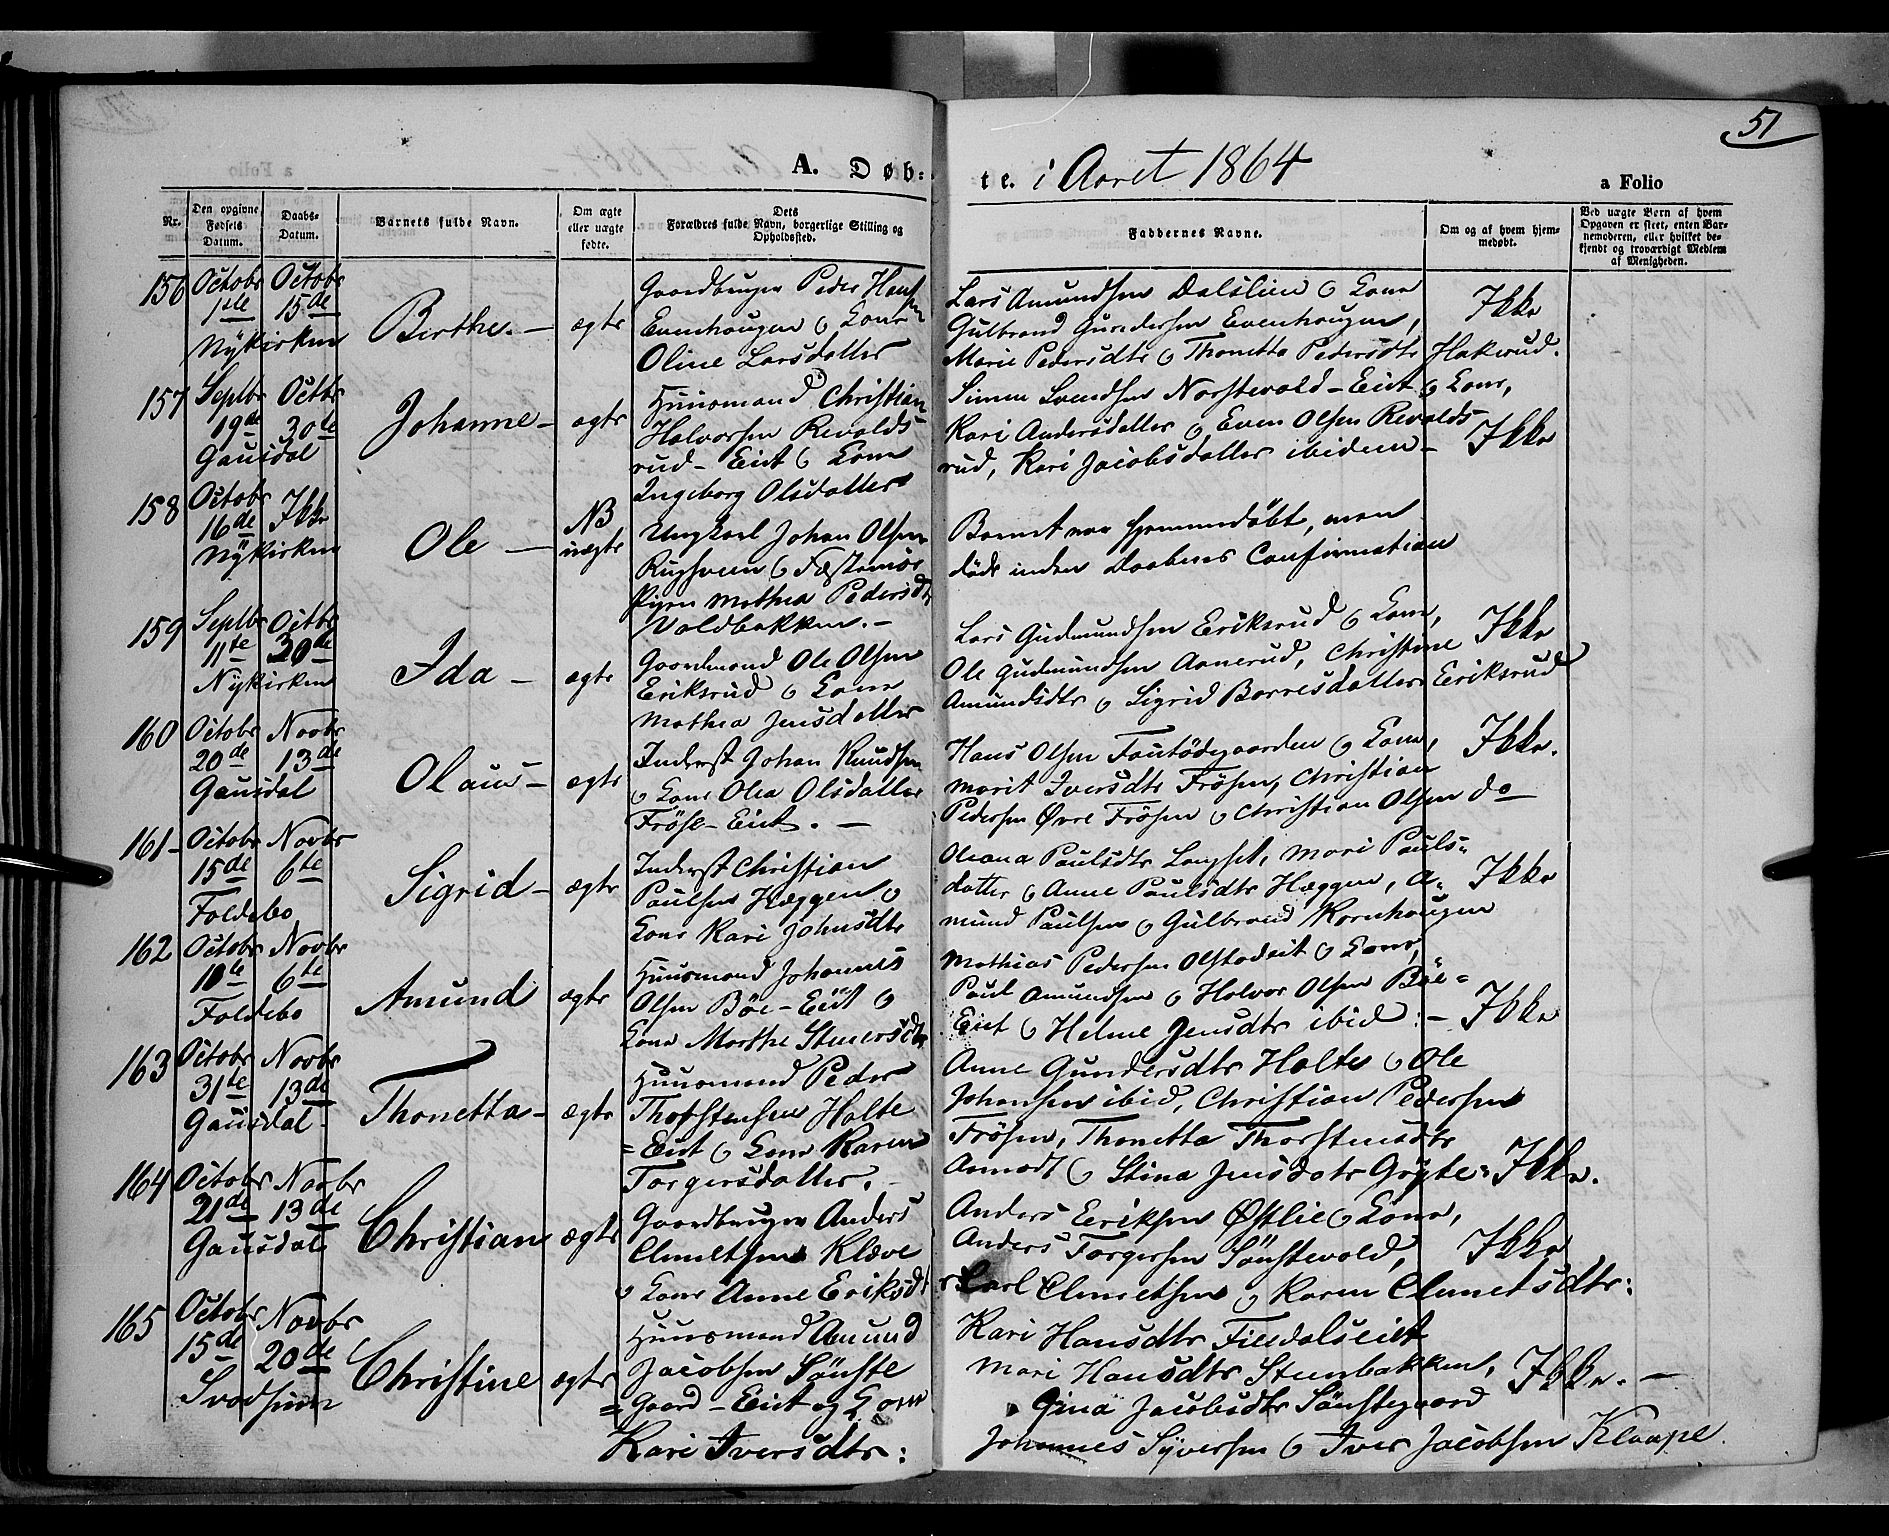 51
A. Døb-
te. i Aaret 1864
a Folio
Nr.
Den opgivne Fødsels Datum.
Daabs-Datum.
Barnets fulde Navn.
Om ægte eller uægte fødte.
Dets Forældres fulde Navn, borgerlige Stilling og Opholdssted.
Faddernes Navne.
Om og af hvem hjemmedøbt.
Ved uægte Børn af hvem Opgaven er skeet, enten Barnemoderen, eller hvilket bekjendt og troværdigt Medlem af Menigheden.
156 Octobr 1ste Octobr 15de
Nykirken
Berthe. — ægte
Gaardbruger Peder Hansen
Evenhaugen & Kone
Oline Larsdatter
Lars Amundsen Dalslien & Kone
Gulbrand Gundersen Evenhaugen,
Marie Pedersdtr & Thonetta Pedersdtr Hakerud.
Ikke
157 Septbr 19de Octbr 30te
Gausdal
Johanne — ægte
Huusmand Christian
Halvorsen Revolds-
rud - Eiet & Kone
Ingeborg Olsdatter
Simen Svendsen Norstevold - Eiet & Kone,
Kari Andersdatter & Even Olsen Revolds-
rud, Kari Jacobsdatter ibidem —
Ikke
158 Octobr 16de Ikke
Nykirken
Ole — NB uægte
Ungkarl Johan Olsen
Rughveen & Fæstemøe
Pigen Mathea Pedersdtr
Voldbakken. —
Barnet var hjemmedøbt, men
døde inden Daabens Confirmation
159 Septbr 11te Octbr 30de
Nykirken
Ida — ægte
Gaardmand Ole Olsen
Eriksrud & Kone
Mathea Jensdatter
Lars Gudmundsen Eriksrud & Kone,
Ole Gudmundsen Aanerud, Christine
Amundsdtr & Sigrid Borresdatter Eriksrud
Ikke
160 Octobr 20de Novbr 13de
Gausdal
Olaus — ægte
Inderst Johan Knudsen
& Kone Olea Olsdatter
Frøse - Eiet. —
Hans Olsen Fautødegaarden & Kone,
Marit Iversdtr Frøsen, Christian
Pedersen Øvre Frøsen & Christian Olsen do
Ikke.
161 - Octobr 15de Novbr 6te
Foldebo
Sigrid — ægte
Inderst Christian
Paulsen Hæggen &
Kone Kari Johnsdtr
Oleana Paulsdtr Langset, Mari Pauls-
datter & Anne Paulsdtr Hæggen, A-
mund Paulsen & Gulbrand Kornhaugen
Ikke
162 Octobr 10te Novbr 6te
Foldebo
Amund ægte
Huusmand Johannes
Olsen Bøe - Eiet &
Kone Marthe Stenersdtr
Mathias Pedersen Olstadeit & Kone,
Paul Amundsen & Halvor Olsen Bøe-
Eiet & Helene Jensdtr ibid: —
Ikke
163 Octobr 31te Novbr 13de
Gausdal
Thonetta — ægte
Huusmand Peder
Thorstensen Holte
= Eiet & Kone Karen
Torgersdatter. —
Anne Gundersdtr Holte & Ole
Johansen ibid, Christian Pedersen
Frøsen, Thonetta Thorstensdtr
& Stina Jensdatr
Ikke.
164 Octobr 21de Novbr 13de
Gausdal
Christian ægte
Gaardbruger Anders
Clemetsen Klæve
& Kone Anne Eriksdtr
Anders Eriksen Østlie & Kone,
Anders Torgersen Sønstevold,
Carl Clemetsen & Karen Clemetsdtr:
Ikke
165 Octobr 15de Novbr 20de
Svadsum
Christine ægte
Huusmand Amund
Jacobsen Sønste
= Gaard - Eiet og Kone
Kari Iversdtr:
Kari Hansdtr Firedalseiet
Mari Hansdtr Steenbakken,
Gina Jacobsdtr Sønstegaard
Johannes Syversen & Iver Jacobsen Klaape.
Ikke. —